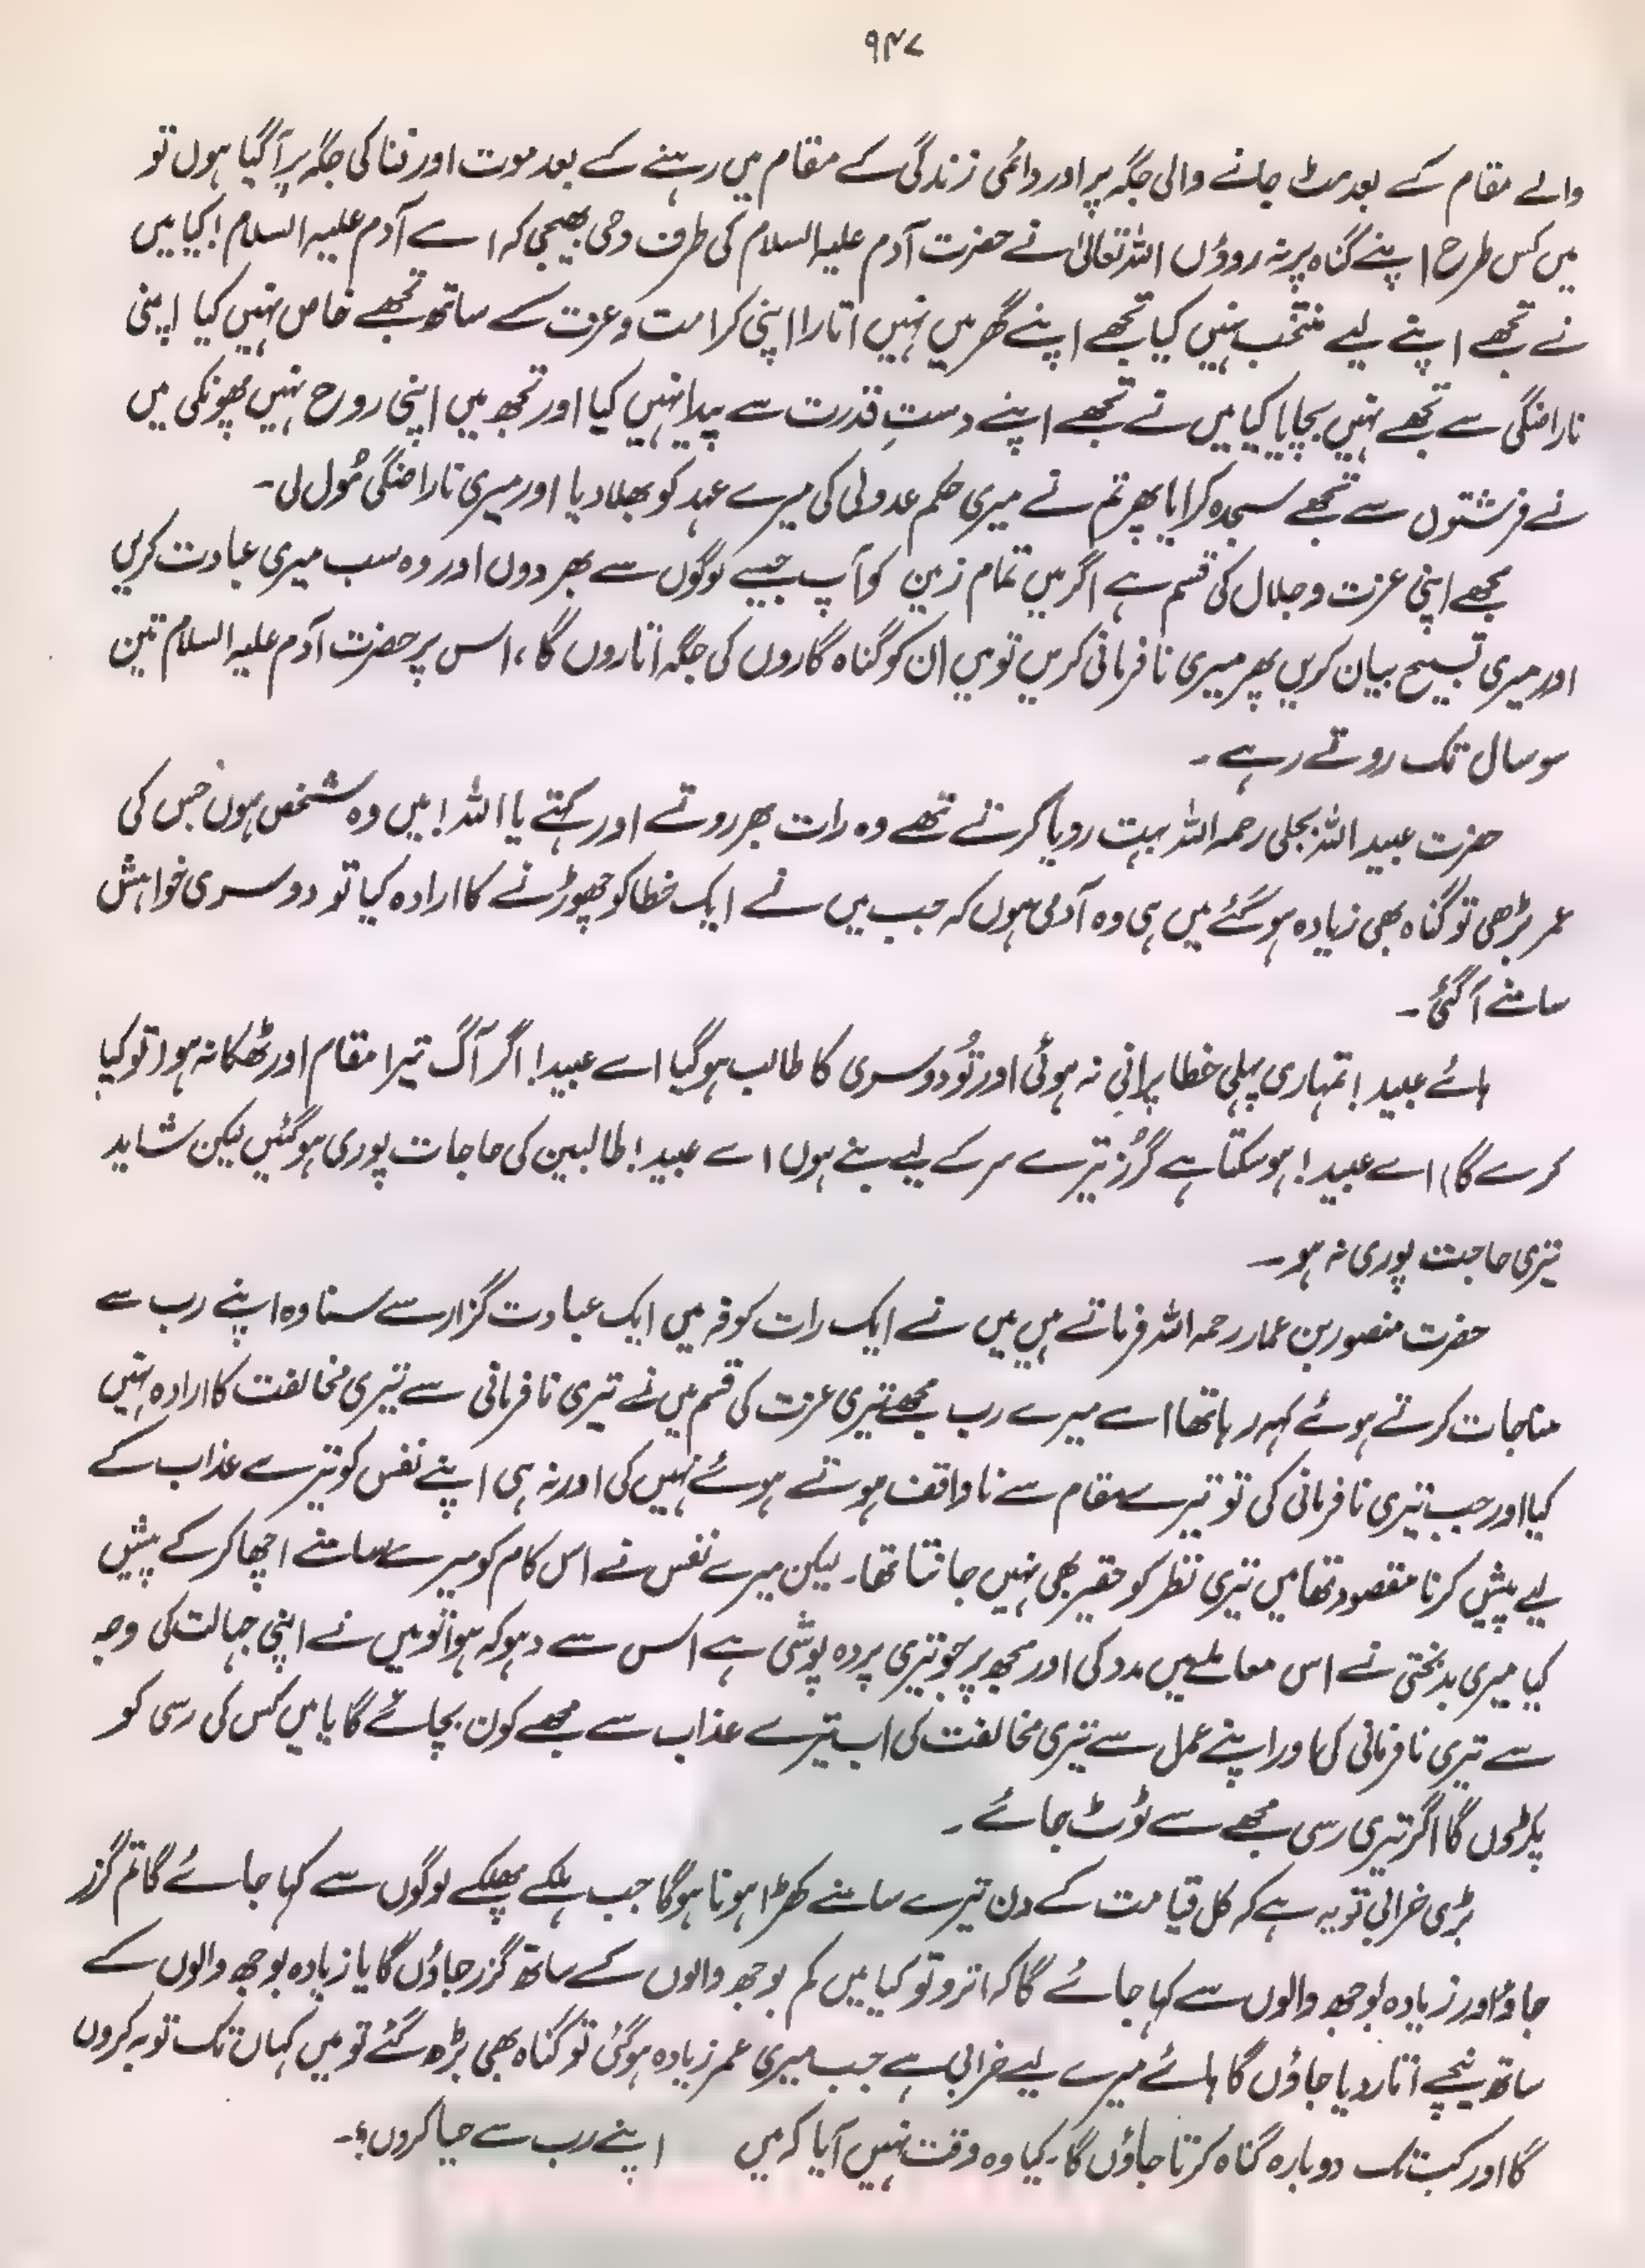 ۹۴۷
والے مقام کے بعد مٹ جانے والی جگہ پر اور دائمی زندگی کے مقام میں رہنے کے بعد موت اور فنا کی جگہ پر آگیا ہوں تو
میں کس طرح اپنے گناہ پر نہ روؤں اللہ تعالیٰ نے حضرت آدم علیہ السلام کی طرف وحی بھیجی کہ اے آدم علیہ السلام! کیا میں
نے تجھے اپنے لیے منتخب نہیں کیا تجھے اپنے گھر میں نہیں اتارا اپنی کرامت و عزت کے ساتھ تجھے خاص نہیں کیا اپنی
ناراضگی سے تجھے نہیں بچایا کیا میں نے تجھے اپنے دستِ قدرت سے پیدا نہیں کیا اور تجھ میں اپنی روح نہیں پھونکی میں
نے فرشتوں سے تجھے سجدہ کرایا پھر تم نے میری حکم عدولی کی میرے عہد کو بھلا دیا اور میری ناراضگی مُول لی۔
مجھے اپنی عزت و جلال کی قسم ہے اگر میں تمام زمین کو آپ جیسے لوگوں سے بھر دوں اور وہ سب میری عبادت کریں
اور میری تسبیح بیان کریں پھر میری نافرمانی کریں تو میں ان کو گناہ گاروں کی جگہ اتاروں گا، اس پر حضرت آدم علیہ السلام تین
سو سال تک روتے رہے۔
حضرت عبید اللہ بجلی رحمہ اللہ بہت رویا کرتے تھے وہ رات بھر روتے اور کہتے یا اللہ! میں وہ شخص ہوں جس کی
عمر بڑھی تو گناہ بھی زیادہ ہو گئے میں ہی وہ آدمی ہوں کہ جب میں نے ایک خطا کو چھوڑنے کا ارادہ کیا تو دوسری خواہش
سامنے آگئی۔
ہائے عبید! تمہاری پہلی خطا پرانی نہ ہوئی اور تُو دوسری کا طالب ہوگیا اے عبید! اگر آگ تیرا مقام اور ٹھکانہ ہوا تو کیا
کرے گا) اے عبید! ہوسکتا ہے گُرز تیرے سر کے لیے بنے ہوں اے عبید! طالبین کی حاجات پوری ہوگئیں لیکن شاید
تیری حاجت پوری نہ ہو۔
حضرت منصور بن عمار رحمہ اللہ فرماتے ہیں میں نے ایک رات کوفہ میں ایک عبادت گزار سے سنا وہ اپنے رب سے
مناجات کرتے ہوئے کہہ رہا تھا اے میرے رب مجھے تیری عزت کی قسم میں نے تیری نافرمانی سے تیری مخالفت کا ارادہ نہیں
کیا اور جب تیری نافرمانی کی تو تیرے مقام سے ناواقف ہوتے ہوئے نہیں کی اور نہ ہی اپنے نفس کو تیرے عذاب کے
لیے پیش کرنا مقصود تھا میں تیری نظر کو حقیر بھی نہیں جانتا تھا۔ لیکن میرے نفس نے اس کام کو میرے سامنے اچھا کر کے پیش
کیا میری بدبختی نے اس معاملے میں مدد کی اور مجھ پر جو تیری پردہ پوشی ہے اس سے دہوکہ ہوا تو میں نے اپنی جہالت کی وجہ
سے تیری نافرمانی کی اور اپنے عمل سے تیری مخالفت کی اب تیرے عذاب سے مجھے کون بچائے گا یا میں کس کی رسی کو
پکڑوں گا اگر تیری رسی مجھے سے ٹوٹ جائے۔
بڑی خرابی تو یہ ہے کہ کل قیامت کے دن تیرے سامنے کھڑا ہونا ہوگا جب ہلکے پھلکے لوگوں سے کہا جائے گا تم گزر
جاؤ اور زیادہ بوجھ والوں سے کہا جائے گا کہ اترو تو کیا میں کم بوجھ والوں کے ساتھ گزر جاؤں گا یا زیادہ بوجھ والوں کے
ساتھ نیچے اتار دیا جاؤں گا ہائے میرے لیے خرابی ہے جب میری عمر زیادہ ہوگئی تو گناہ بھی بڑھ گئے تو میں کہاں تک توبہ کروں
گا اور کب تک دوبارہ گناہ کرتا جاؤں گا۔ کیا وہ وقت نہیں آیا کہ میں اپنے رب سے حیا کروں؟۔